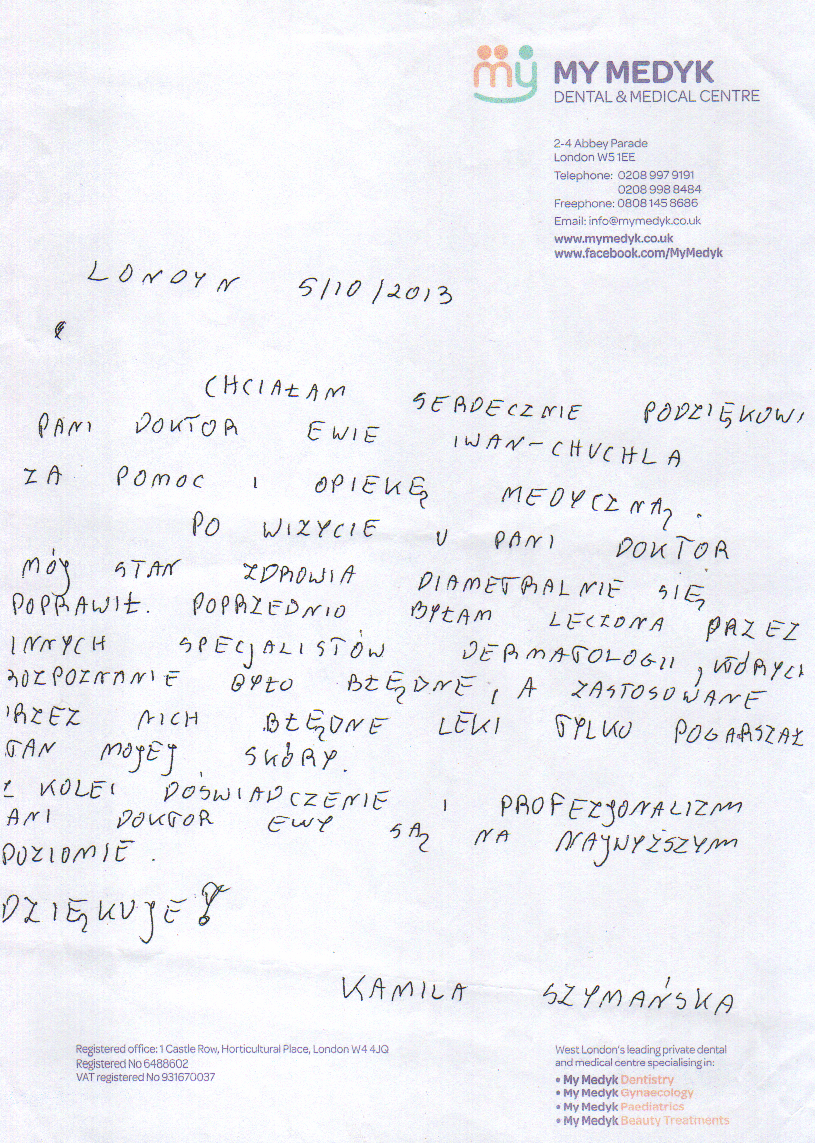 my MY MEDYK
DENTAL & MEDICAL CENTRE
2-4 Abbey Parade
London W5 1EE
Telephone: 0208 997 9191
0208 998 8484
Freephone: 0808 145 8686
Email: info@mymedyk.co.uk
www.mymedyk.co.uk
www.facebook.com/MyMedyk
LONDYN 5/10/2013
CHCIAŁAM SERDECZNIE PODZIĘKOWI
PANI DOKTOR EWIE IWAN-CHUCHLA
ZA POMOC I OPIEKĘ MEDYCZNĄ.
PO WIZYCIE U PANI DOKTOR
MÓJ STAN ZDROWIA DIAMETRALNIE SIĘ
POPRAWIŁ. POPRZEDNIO BYŁAM LECZONA PRZEZ
INNYCH SPECJALISTÓW DERMATOLOGII, KTÓRYCH
ROZPOZNANIE BYŁO BŁĘDNE, A ZASTOSOWANE
PRZEZ NICH BŁĘDNE LEKI TYLKO POGARSZAŁ
TAN MOJEJ SKÓRY.
Z KOLEI DOŚWIADCZENIE I PROFEZJONALIZM
ANI DOKTOR EWY SĄ NA NAJWYŻSZYM
POZIOMIE.
DZIĘKUJE!
KAMILA SZYMAŃSKA
Registered office: 1 Castle Row, Horticultural Place, London W4 4JQ
Registered No 6488602
VAT registered No 931670037
West London's leading private dental
and medical centre specialising in:
• My Medyk Dentistry
• My Medyk Gynaecology
• My Medyk Paediatrics
• My Medyk Beauty Treatments